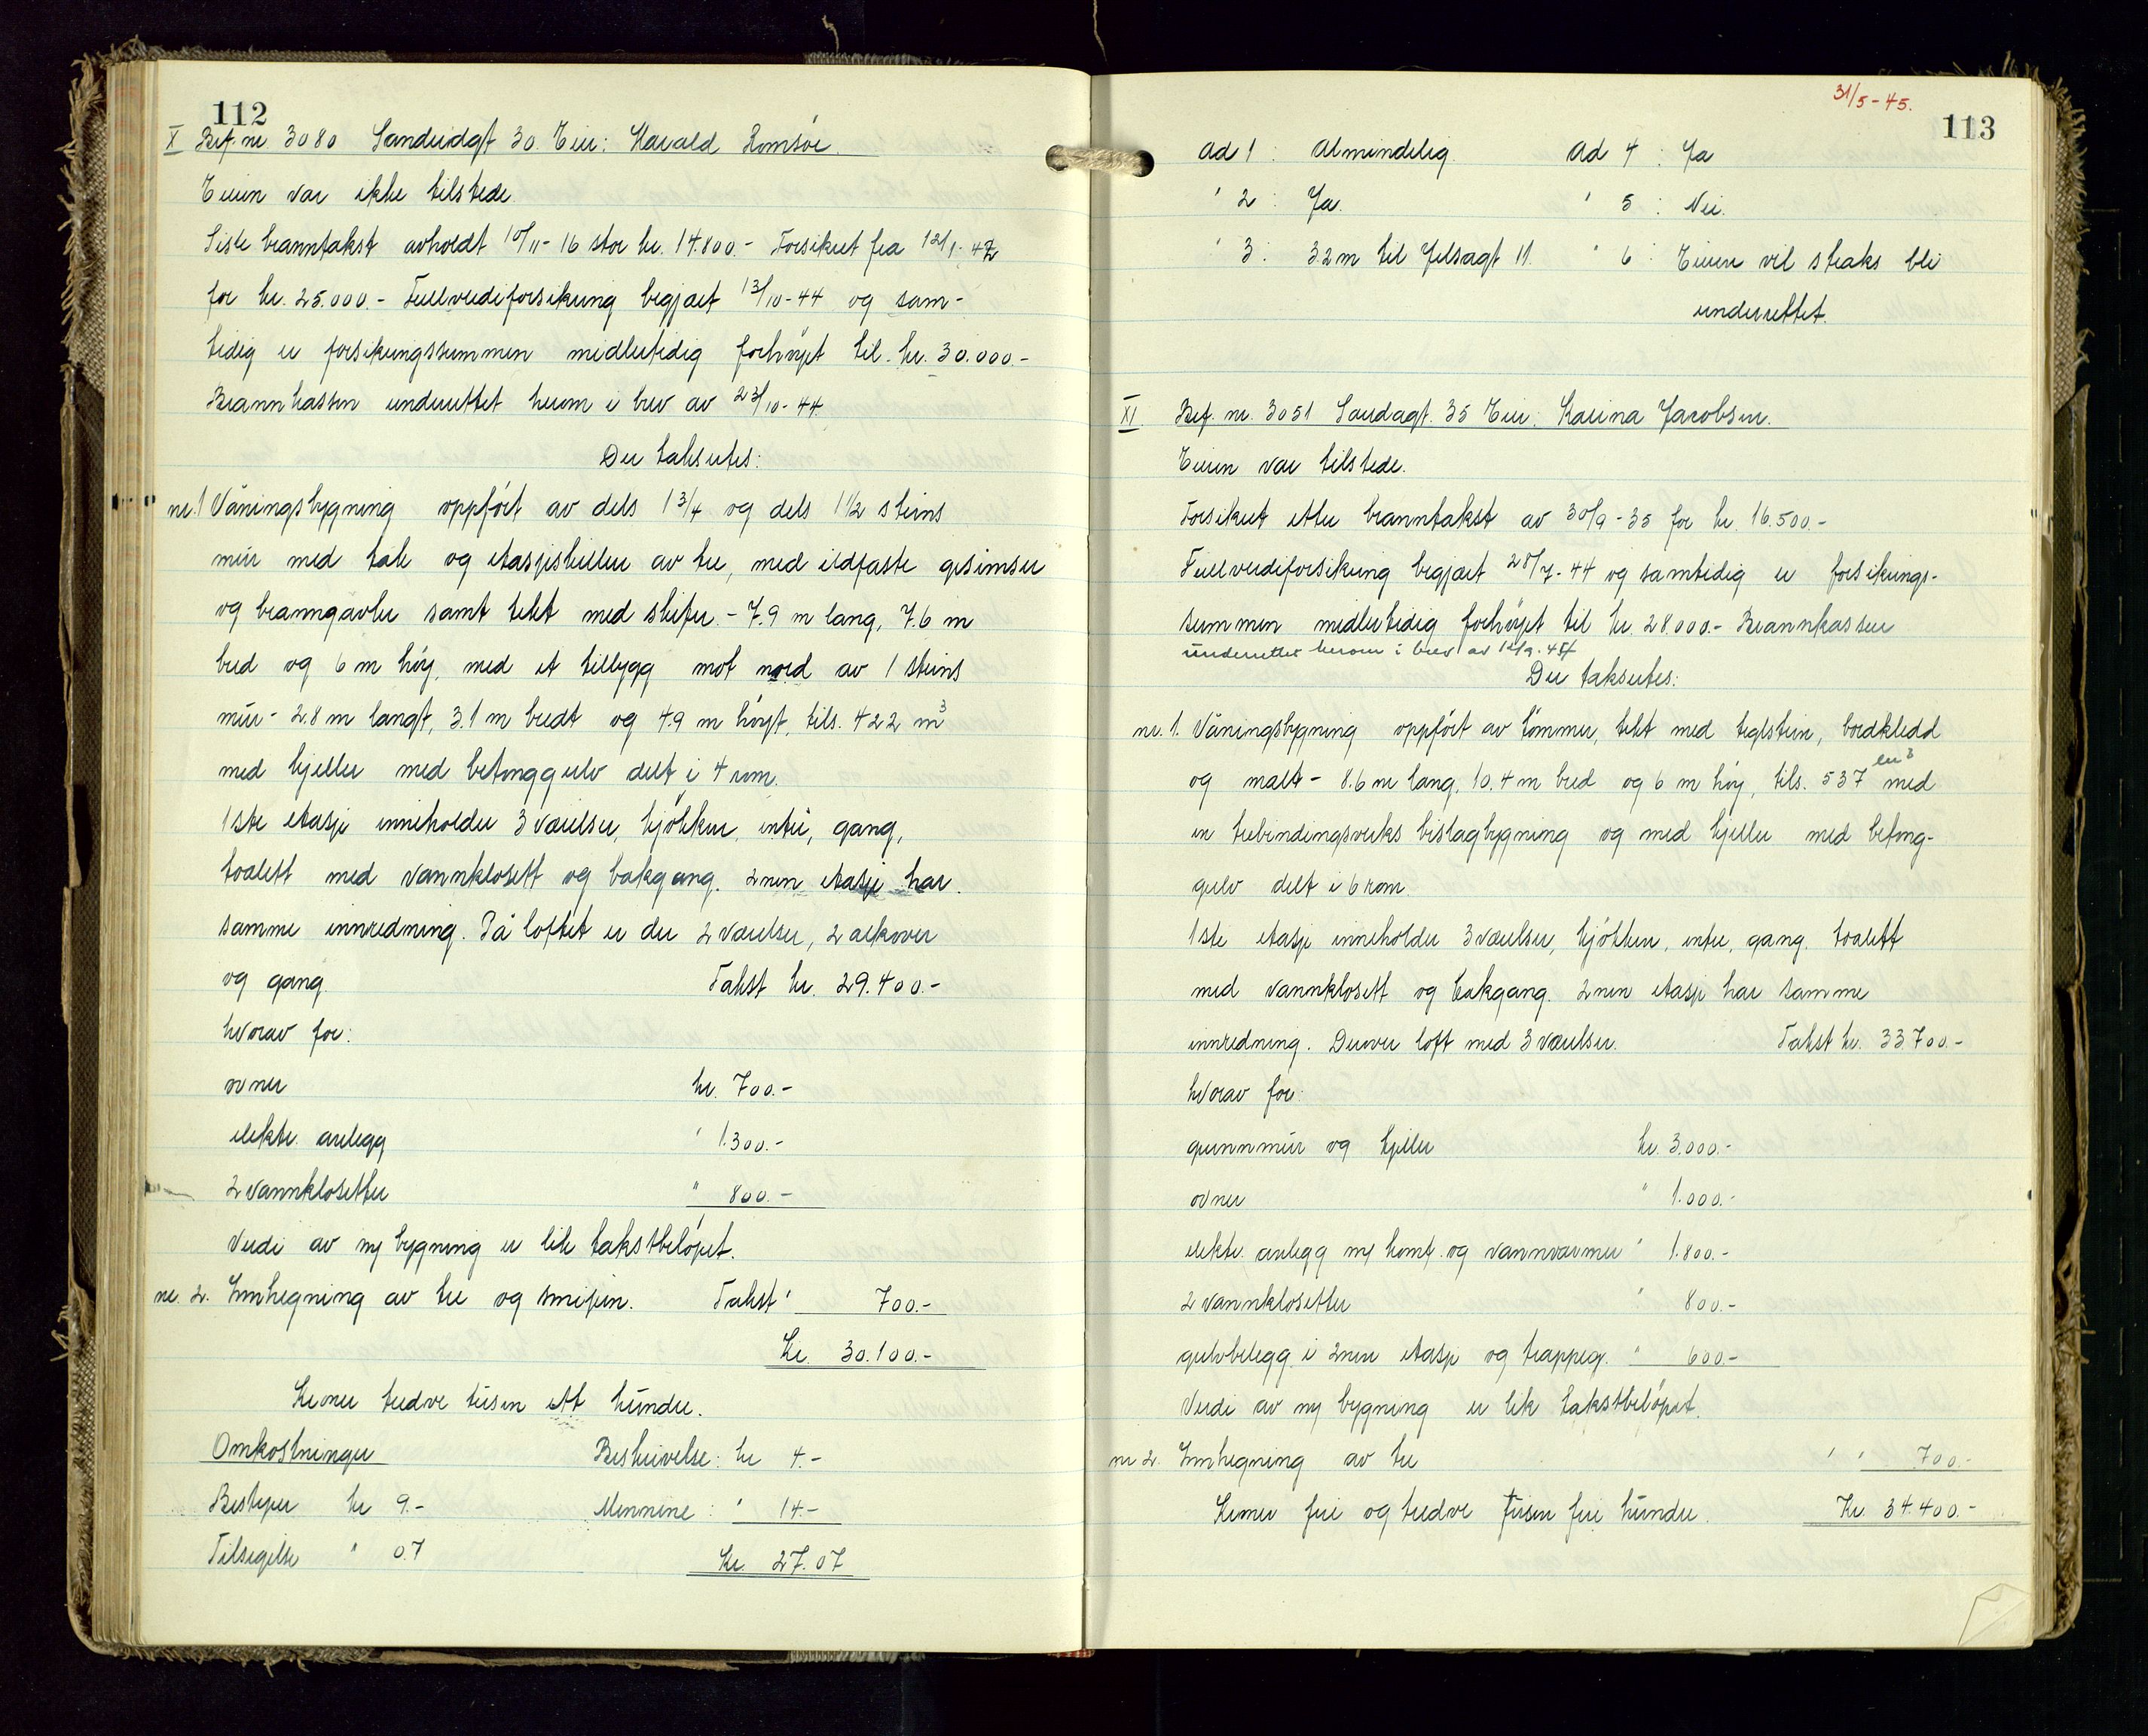 112
X Brf. nr. 3080 Sandvidgt 30. Eier: Harald Romsöe.
Eieren var ikke tilstede
Siste branntakst avholdt 10/11-16 stor kr. 14.800.- Forsikret fra 12/1-42
for kr. 25.000.- Fullverdiforsikring begjært 13/10-44 og sam-
tidig er forsikringssummen midlertidig forhöyet til kr. 30.000.-
Brannkassen underrettet herom i brev av 23/10-44
Der takseres:
nr. 1 Våningsbygning oppfört av dels 1 3/4 og dels 1 1/2 steins
mur med tak og etasjeskiller av tre, med ildfaste gesimser
og branngavler samt tekt med skifer. - 7.9 m lang, 7.6 m
bred og 6 m höy, med et tilbygg mot nord av 1 steins
mur - 2.8 m langt, 3.1 m bredt og 4.9 m höyt, tils. 422 m³
med kjeller med betonggulv delt i 4 rom.
1ste etasje inneholder 3 værelser, kjökken, entre, gang,
toalett med vannklosett og bakgang. 2nen etasje har
samme innredning. På loftet er der 2 værelser, 2 alkover
og gang. Takst kr. 29.400.-
hvorav for:
ovner kr. 700.-
elektr. anlegg " 1.300.-
2 vannklosetter " 800.-
Verdi av ny bygning er lik takstbelöpet.
nr. 2. Innhegning av tre og smijern. Takst " 700.-
Kr. 30.100.-
Kroner tredve tusen ett hundre.
Omkostninger Beskrivelse: kr 4.-
Bestyrer kr 9.- Mennene: " 14.-
Tilsigelse " 0.7 Kr. 27.07
31/5-45.
113
Ad 1: Almindelig. Ad 4: Ja
" 2: Ja. " 5: Nei.
" 3: 3.2 m til Jelsagt 11. " 6: Eieren vil straks bli
underrettet.
XI. Brf. nr. 3051 Sandagt. 35 Eier: Karina Jacobsen.
Eieren var tilstede.
Forsikret etter branntakst av 30/9-35 for kr. 16.500.-
Fullverdiforsikring begjært 28/7-44 og samtidig er forsikrings-
summen midlertidig forhöyet til kr. 28.000.- Brannkassen
underrettet herom i brev av 12/9-44
Der takseres:
nr. 1. Våningsbygning oppfört av tömmer, tekt med teglstein, bordkledd
og malt - 8.6 m lang, 10.4 m bred og 6 m höy, tils. 537 m³ med
en trebindingsverks bislagbygning og med kjeller med betong-
gulv delt i 6 rom.
1ste etasje inneholder 3 værelser, kjökken, entre, gang, toalett
med vannklosett og bakgang. 2nen etasje har samme
innredning. Derover loft med 3 værelser. Takst kr. 33.700.-
hvorav for:
grunnmur og kjeller kr. 3.000.-
ovner " 1.000.-
elektr. anlegg m/ komf. og vannvarmer " 1.800.-
2 vannklosetter " 800.-
gulvbelegg i 2nen etasje og trappeg. " 600.-
Verdi av ny bygning er lik takstbelöpet.
nr 2. Innhegning av tre " " 700.-
Kroner fire og tredve tusen fire hundre. Kr. 34.400.-